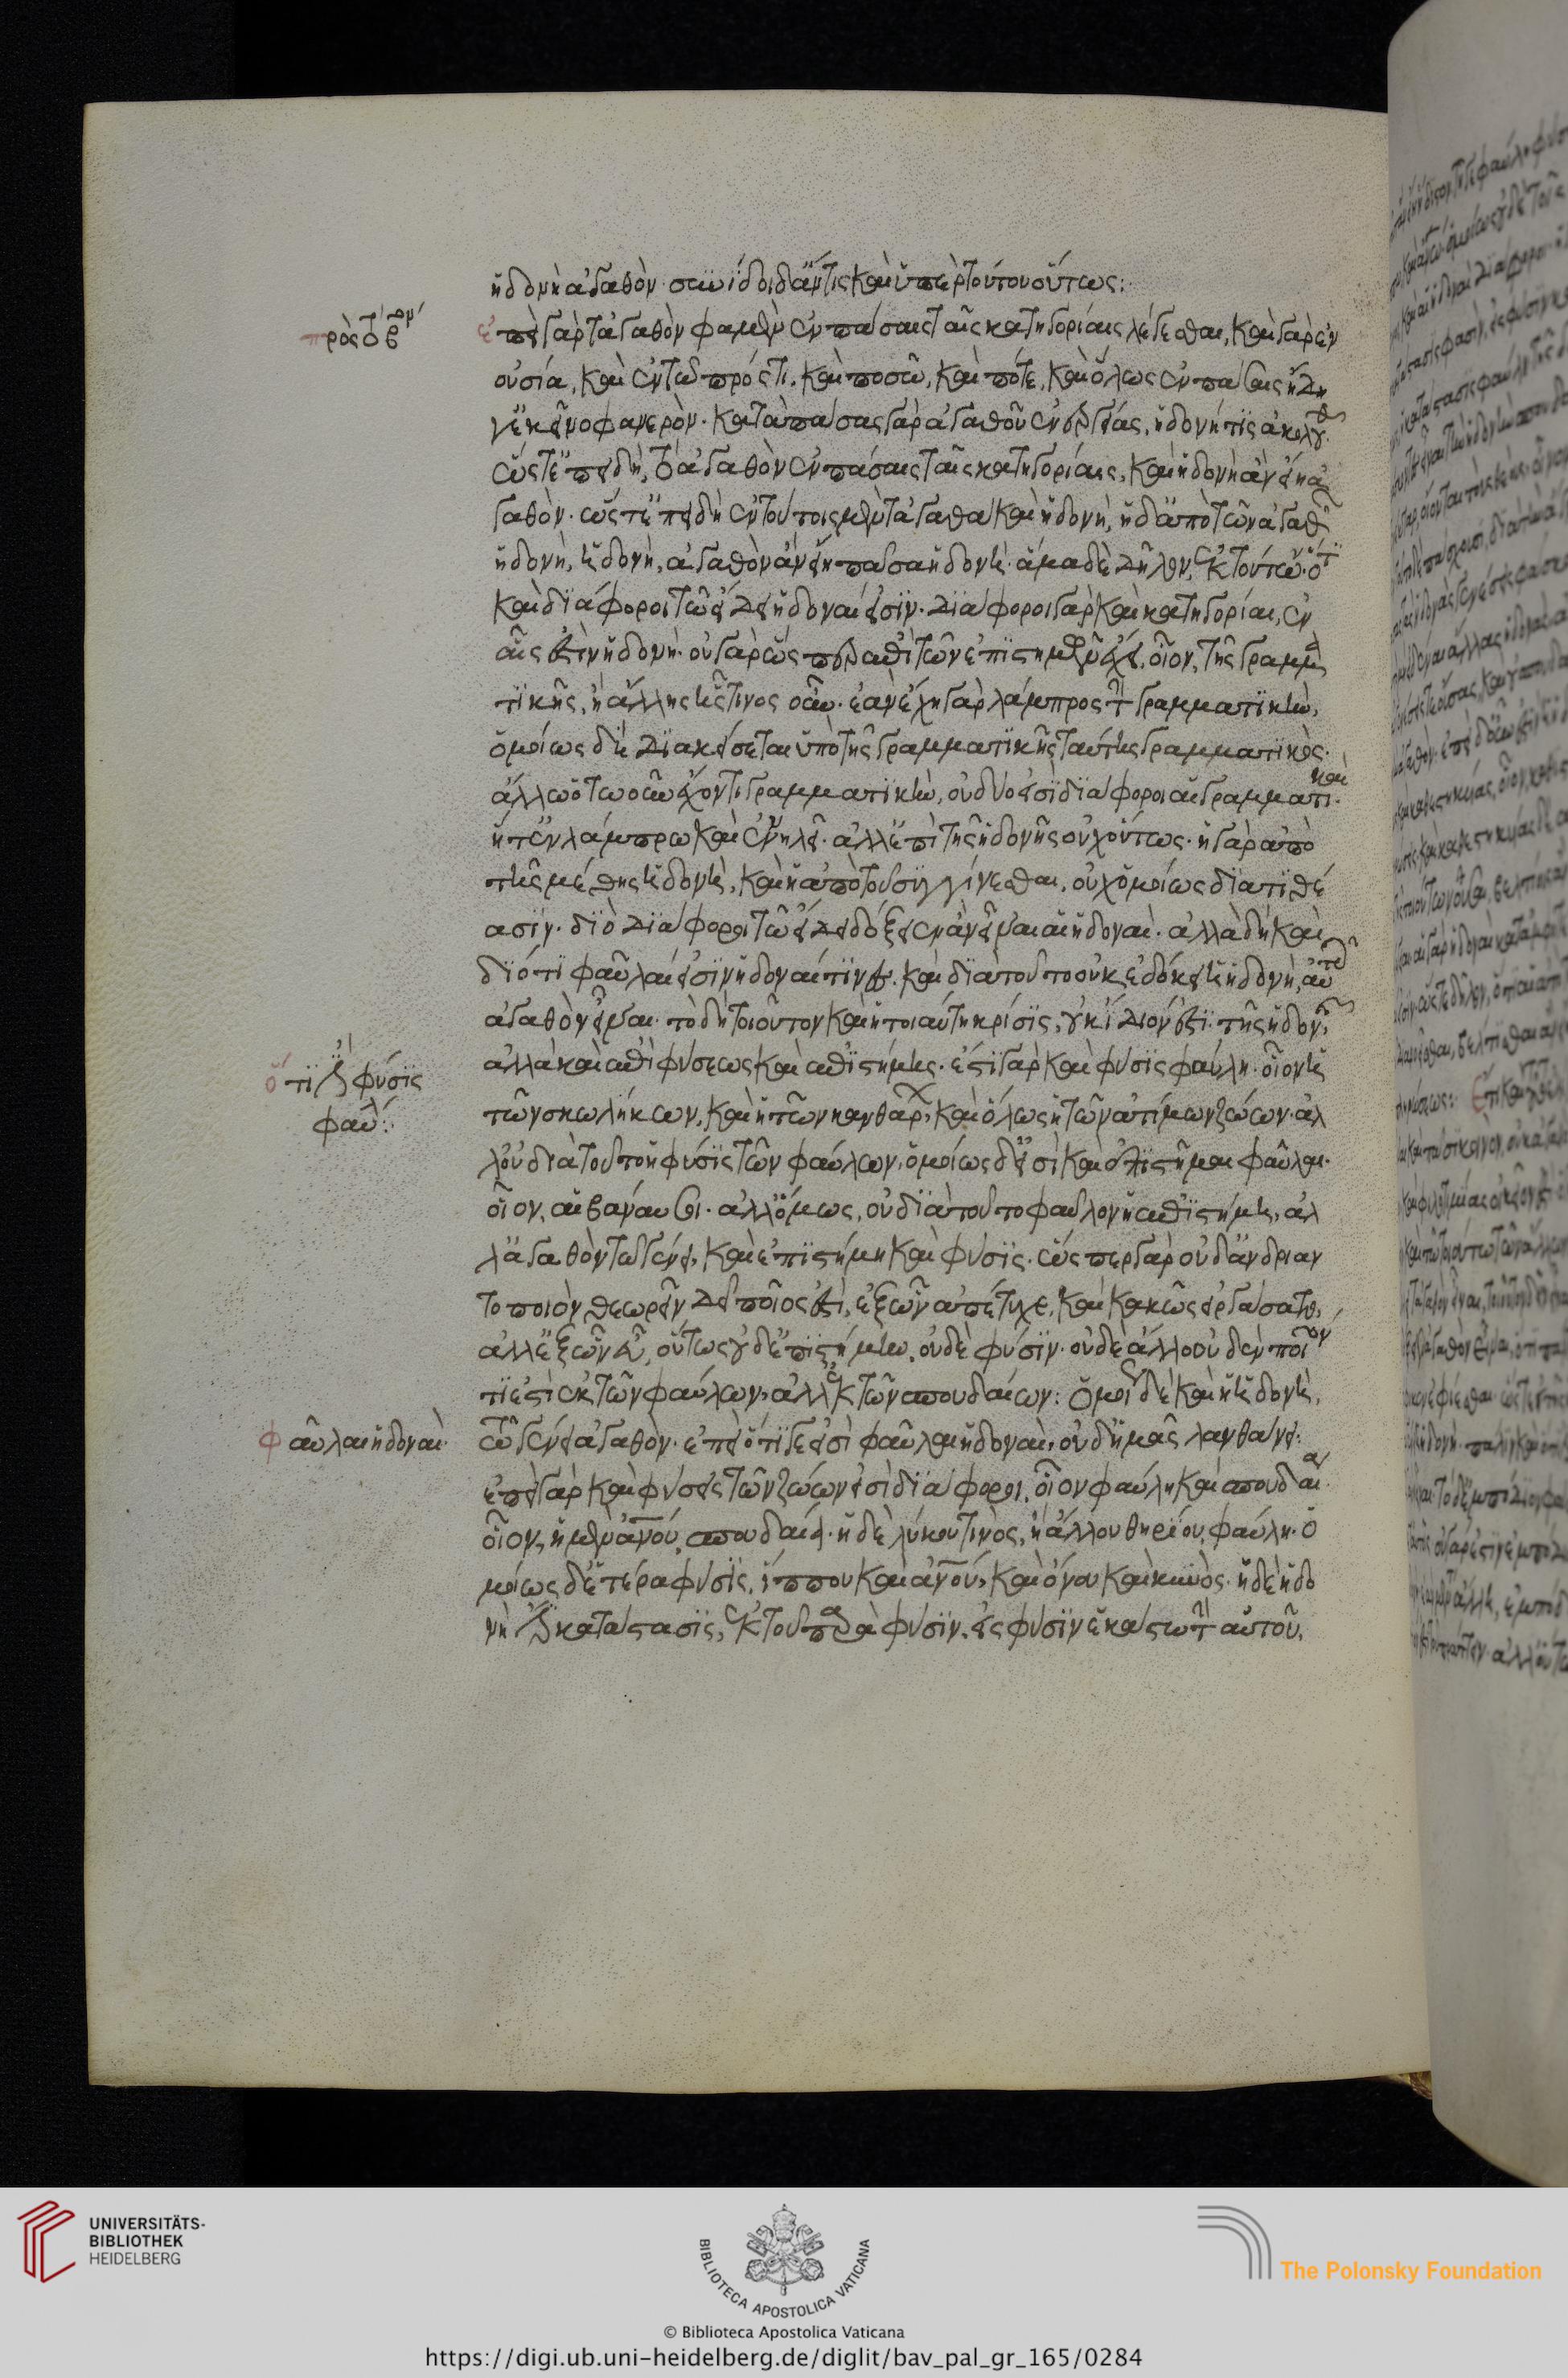 ἡδονὴ ἀγαθὸν. συνίδοι δ' ἄν τις καὶ ὑπὲρ τούτου οὕτως:
πρὸς τὸ βον
ἐπεὶ γὰρ τἀγαθὸν φαμὲν ἐν πάσαις ταῖς κατηγορίαις λέγεσθαι, καὶ γὰρ ἐν
οὐσία, καὶ ἐν τῶ πρός τι. καὶ ποσῶ, καὶ πότε, καὶ ὅλως ἐν πάσαις ἤδη
γ' ἐκεῖνο φανερὸν. κατὰ πάσας γὰρ ἀγαθοῦ ἐνεργείας, ἡδονή τις ἀκολουθ
ὥστ' ἐπειδὴ, τὸ ἀγαθὸν ἐν πάσαις ταῖς κατηγορίαις, καὶ ἡδονὴ ἂν εἴη ἀ
γαθὸν. ὥστ' ἐπειδὴ ἐν τούτοις μὲν τἀγαθὰ καὶ ἡδονὴ, ἡ δ' ἀπὸ τῶν ἀγαθ
ἡδονὴ, ἡδονὴ, ἀγαθὸν ἂν εἴη πᾶσα ἡδονή. ἅμα δὲ δῆλον, ἐκ τούτων ὅτι
καὶ διάφοροι τῶ εἴδει ἡδοναί εἰσιν. διάφοροι γὰρ καὶ κατηγορίαι, ἐν
αἷς ἐστὶν ἡδονὴ. οὐ γὰρ ὡς περ ἐπὶ τῶν ἐπιστημῶν ἔχει, οἷον, τῆς γραμμα
τικῆς, ἢ ἄλλης ἧς τινος οὖν. ἐὰν ἔχη γὰρ λάμπρος τὴν γραμματικὴν,
ὁμοίως δὴ διακείσεται ὑπὸ τῆς γραμματικῆς ταύτης γραμματικὸς.
ἄλλω ὁτωοῦν ἔχοντι γραμματικὴν, οὐ δύο εἰσὶ διάφοροι αἱ γραμματικαὶ.
ἥ τ' ἐν λάμπρω καὶ ἐν ἠλεῖ. ἀλλ' ἐπὶ τῆς ἡδονῆς οὐχ οὕτως. ἡ γὰρ ἀπὸ
τῆς μέθης ἡδονὴ, καὶ ἡ ἀπὸ τοῦ συγγίνεσθαι, οὐχ ὁμοίως διατιθέ
ασιν. διὸ διάφοροι τῶ εἴδει δόξειεν ἂν εἶναι αἱ ἡδοναὶ. ἀλλὰ δὴ καὶ
διότι φαῦλαί εἰσιν ἡδοναί τινες. καὶ διὰ τοῦτο οὐκ ἐδόκει ἡ ἡδονὴ, αὐτοῖς
ἀγαθὸν εἶναι. τὸ δὴ τοιοῦτον καὶ ἡ τοιαύτη κρίσις, οὐκ ἴδιόν ἐστι τῆς ἡδονῆς
ὅτι ἔστι φύσις
φαύλη:
ἀλλὰ καὶ ἐπὶ φύσεως καὶ ἐπιστήμης. ἔστι γὰρ καὶ φύσις φαύλη. οἷον ἡ
τῶν σκωλήκων, καὶ ἡ τῶν κανθάρων, καὶ ὅλως ἡ τῶν ἀτίμων ζώων. ἀλ
λ' οὐ διὰ τοῦτο ἡ φύσις τῶν φαύλων. ὁμοίως δ' εἰσὶ καὶ ἐπιστῆμαι φαῦλαι.
οἷον, αἱ βάναυσοι. ἀλλ' ὅμως, οὐ διὰ τοῦτο φαῦλον ἡ ἐπιστήμη, ἀλ
λ' ἀγαθὸν τῶ γένει, καὶ ἐπιστήμη καὶ φύσις. ὥσπερ γὰρ οὐδ' ἀνδριαν
τοποιὸν θεωρεῖν δεῖ ποῖος ἐστὶ, ἐξ ὧν ἀπέτυχε, καὶ κακῶς εἰργάσατο,
ἀλλ' ἐξ ὧν εὖ, οὕτως οὐδ' ἐπιστήμην, οὐδὲ φύσιν. οὐδὲ ἄλλο οὐδὲν ποῖον
τί ἐστι ἐκ τῶν φαύλων, ἀλλ' ἐκ τῶν σπουδαίων: ὁμοίως δὲ καὶ ἡ ἡδονὴ,
φαῦλαι ἡδοναὶ.
τῶ γένει ἀγαθὸν. ἐπεὶ ὅτι γε εἰσὶ φαῦλαι ἡδοναὶ, οὐδ' ἡμᾶς λανθάνει:
ἐπεὶ γὰρ καὶ φύσεις τῶν ζώων εἰσὶ διάφοροι. οἷον φαύλη καὶ σπουδαία.
οἷον, ἡ μὲν ἀνου, σπουδαία. ἡ δὲ λύκου τινὸς, ἢ ἄλλου θηρίου, φαύλη. ὁ
μοίως δ' ἑτέρα φύσις, ἵππου καὶ ἀνου, καὶ ὄνου καὶ κυνὸς. ἡ δὲ ἡδο
νὴ ἐστὶ κατάστασις, ἐκ τοῦ παρὰ φύσιν, εἰς φύσιν ἑκάστω τὴν αὐτοῦ,
UNIVERSITÄTS-
BIBLIOTHEK
HEIDELBERG
BIBLIOTECA APOSTOLICA VATICANA
The Polonsky Foundation
© Biblioteca Apostolica Vaticana
https://digi.ub.uni-heidelberg.de/diglit/bav_pal_gr_165/0284